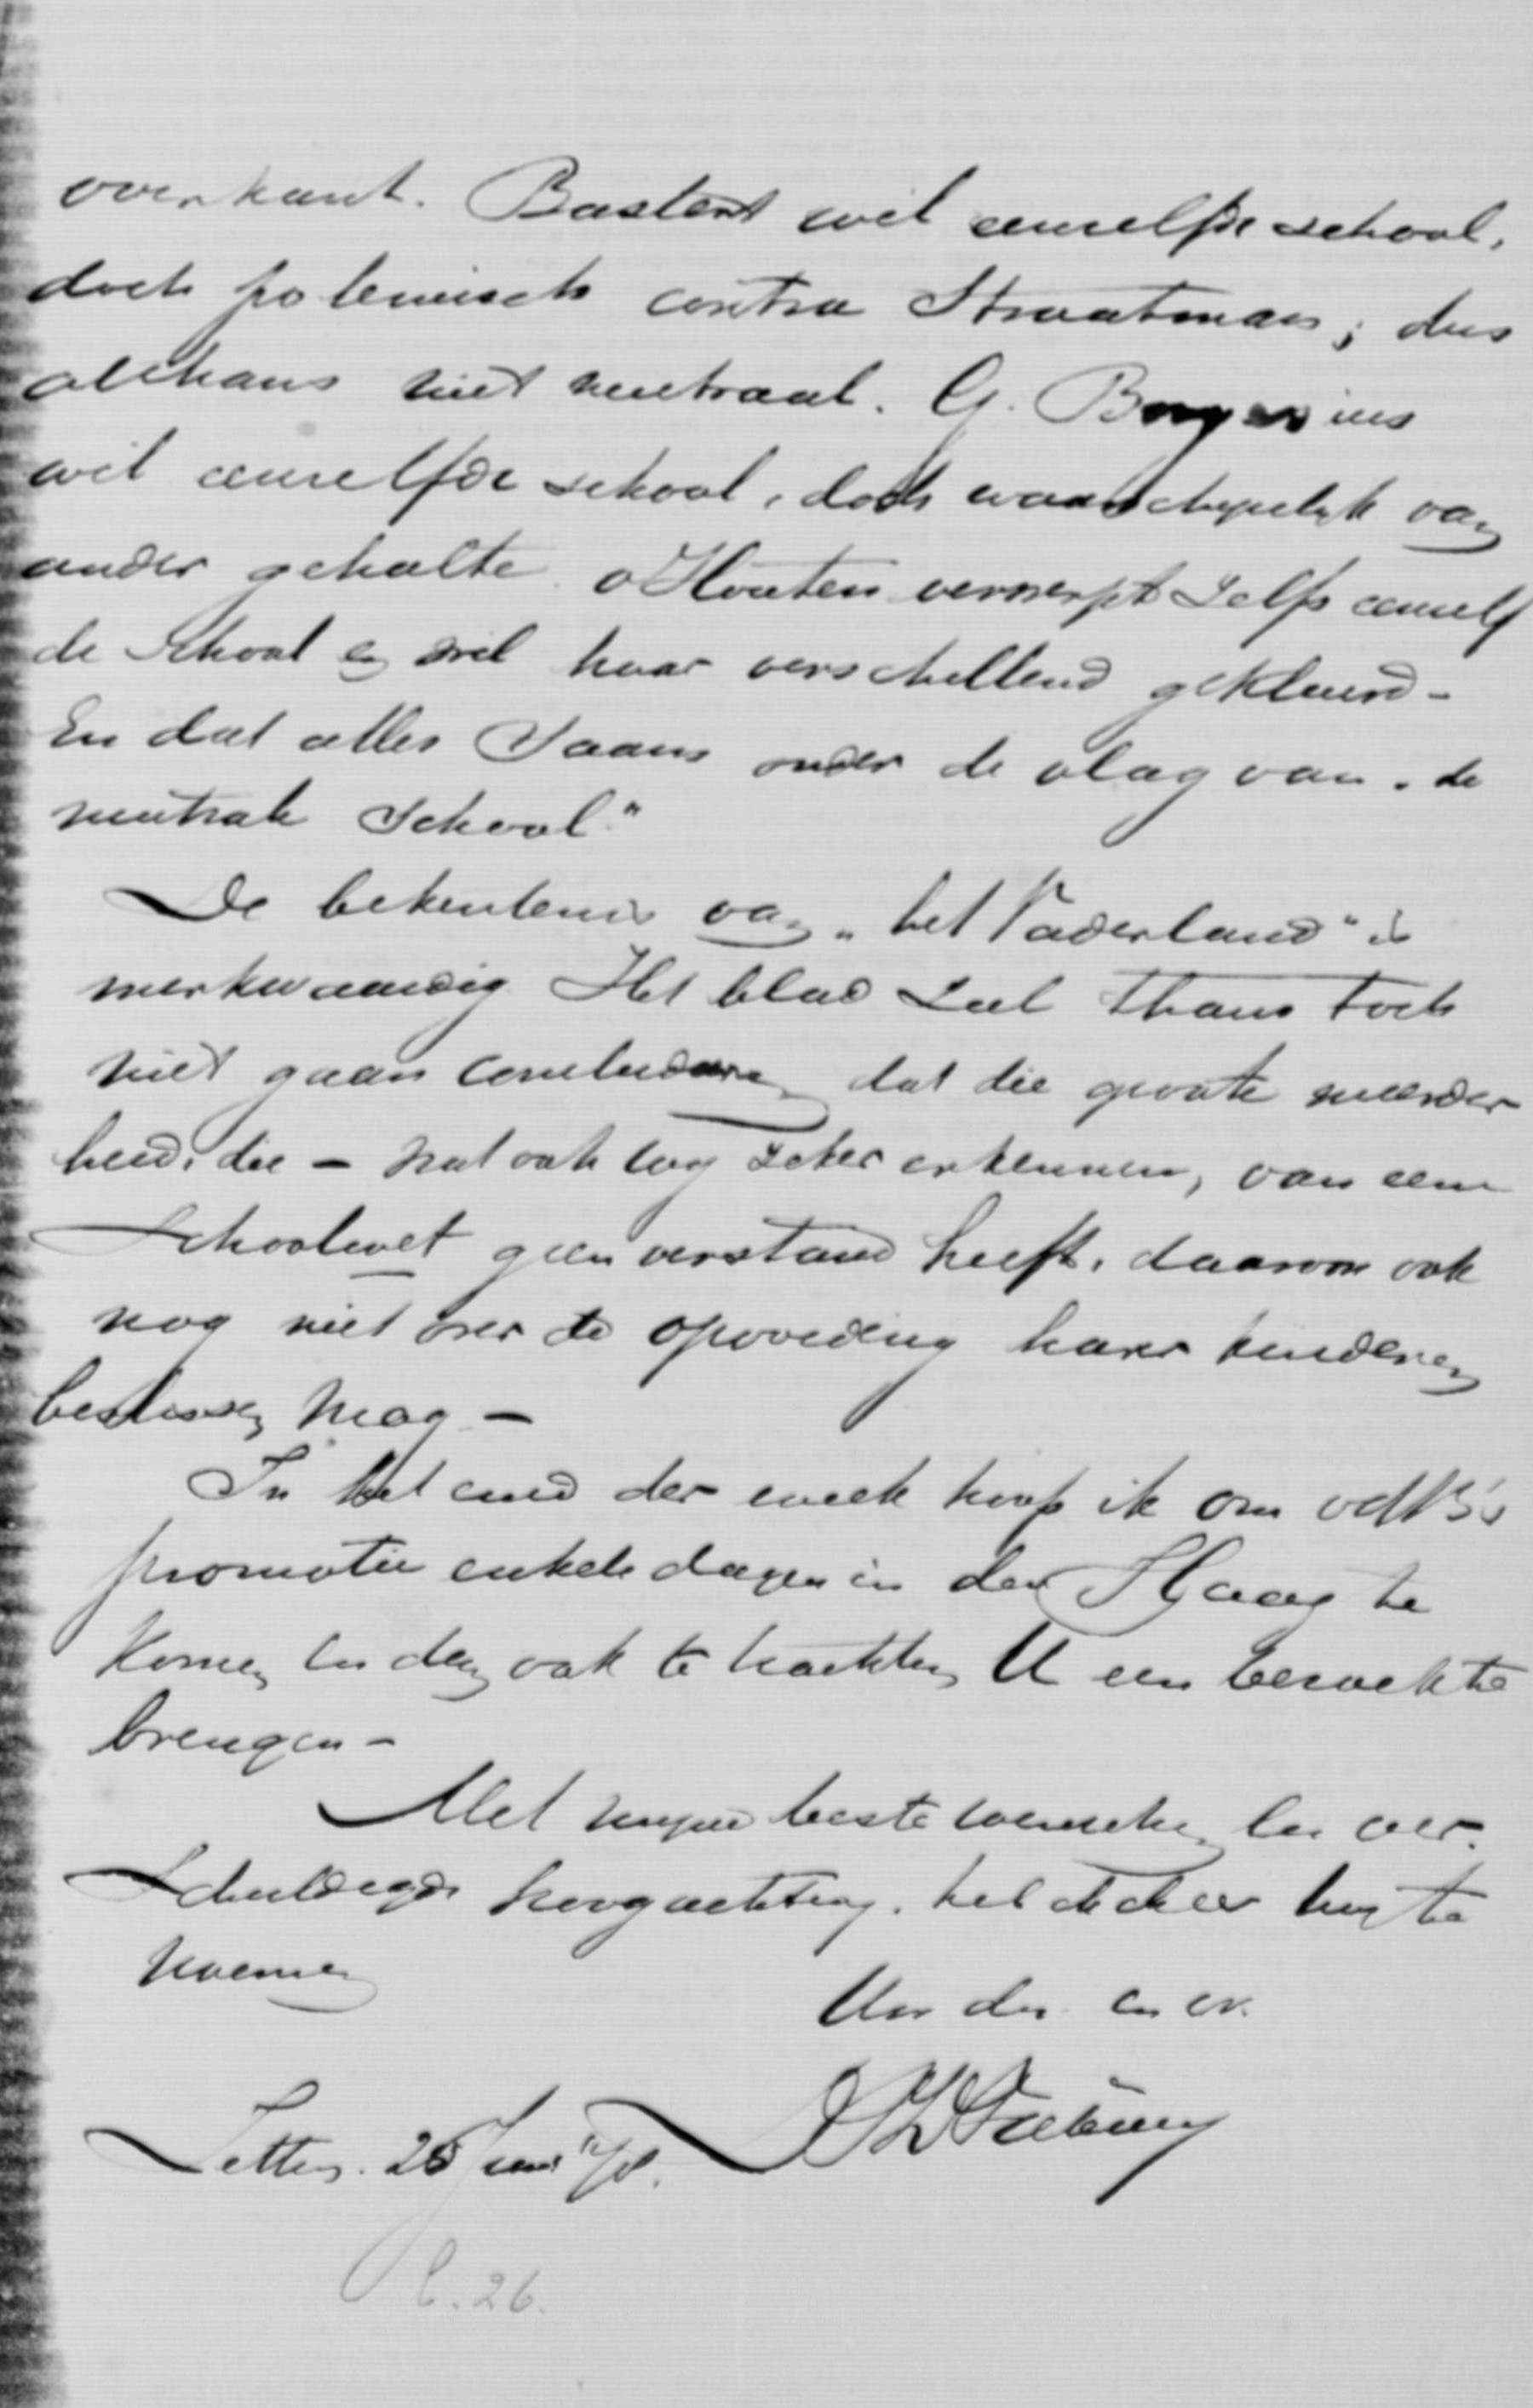 overkant. Bastert wil eenzelfde school,
doch polemisch contra Straatman; dus
althans niet neutraal. G. Borgesius
wil eenzelfde school, doch waarschijnlijk van
ander gehalte. v Houten verwerpt zelfs eenzelf
de school en wil haar verschillend gekleurd -
En dat alles Saam onder de vlag van „de
neutrale School."
De bekentenis van „het Vaderland" is
merkwaardig. Het blad zal thans toch
niet gaan concludeeren dat die groote meerder
heid, die - zal ook zeker erkennen, van eene
Schoolwet geen verstand heeft, daarom ook
nog niet over de opvoeding harer kinderen
beslissen mag -
In het eind der week hoop ik om vdB's
promotie enkele dagen in den Haag te
Komen en dan ook te trachten U een bezoek te
brengen -
Met mijne beste wenschen en ver-
Schuldigde hoogachting, heb ik de eer mij te
noemen
Uw dn. en vr.

Letten. 25 Juni
C. 26.